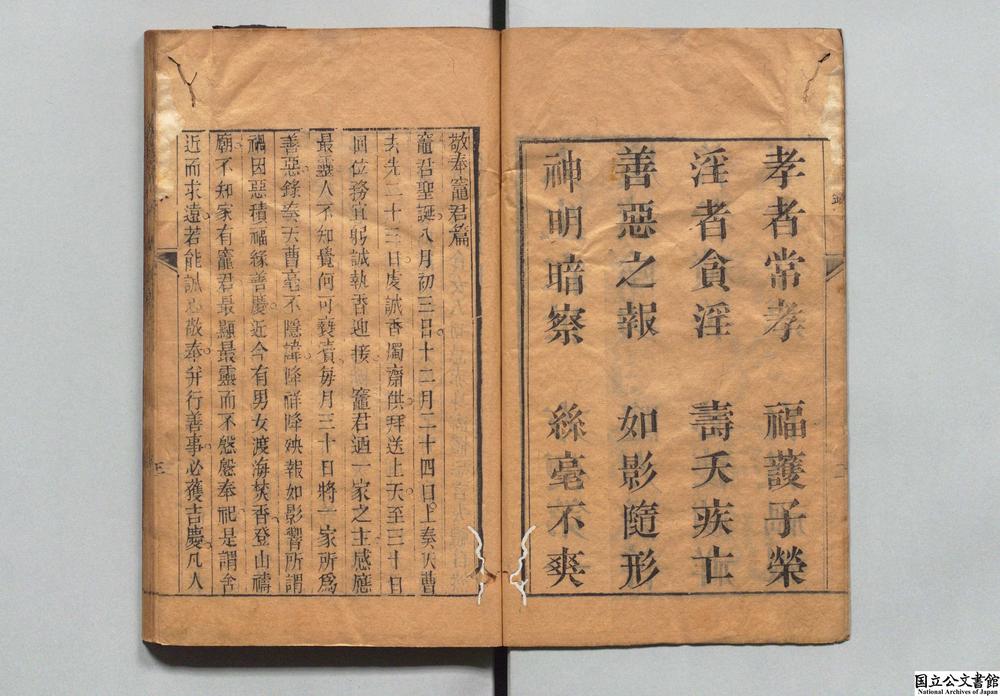 孝者常孝　福護子榮
淫者貪淫　壽夭疾亡
善惡之報　如影隨形
神明暗察　絲毫不爽
敬奉竈君篇
竈君聖誕八月初三日十二月二十四日上奏天曹
去先二十三日虔誠香燭齋供拜送上天至三十日
回位務宜躬誠執香迎接　竈君迺一家之主感應
最靈人不知覺何可褻瀆每月三十日將一家所爲
善惡錄奏天曹毫不隱諱降祥降殃報如影響所謂
禍因惡積福緣善慶近今有男女渡海焚香登山禱
廟不知家有竈君最顯最靈而不慇慇奉祀是謂舍
近而求遠若能誠心敬奉并行善事必獲吉慶凡人
三
国立公文書館
National Archives of Japan